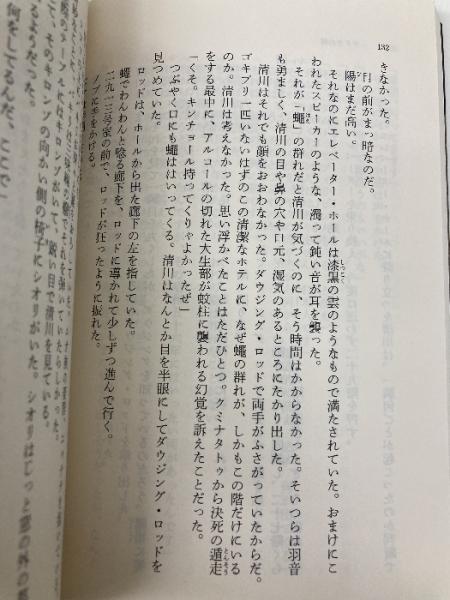 132
きなかった。
目の前がまっ暗なのだ。
陽はまだ高い。
それなのにエレベーター・ホールは漆黒の雲のようなもので満たされていた。おまけにこ
われたスピーカーのような、濁って鈍い音が耳を襲った。
それが「蠅」の群れだと清川が気づくのに、そう時間はかからなかった。そいつらは羽音
も勇ましく、清川の目や鼻の穴や口元、湿気のあるところにたかり出した。
清川はそれでも顔をおおわなかった。ダウジング・ロッドで両手がふさがっていたからだ。
ゴキブリ一匹いないはずのこの清潔なホテルに、なぜ蠅の群れが、しかもこの階だけにいる
のか。清川は考えなかった。思い浮かべたことはただひとつ。クミナタトゥから決死の遁走
をする最中に、アルコールの切れた大生部が蚊柱に襲われる幻覚を訴えたことだった。
「くそ。キンチョール持ってくりゃよかったぜ」
つぶやく口にも蠅ははいってくる。清川はなんとか目を半眼にしてダウジング・ロッドを
見つめていた。
ロッドは、ホールから出た廊下の左を指していた。
蠅でわんわんと唸る廊下を、ロッドに導かれて少しずつ進んで行く。
二九一三号室の前で、ロッドが狂ったように振れた。
ノブに手をかける。
鋭い目で清川を見ている。
るようだった。
そして、そのキロンゾの向かい側の椅子にシオリがいた。シオリはじっと窓の外の
何をしてるんだ、ここで